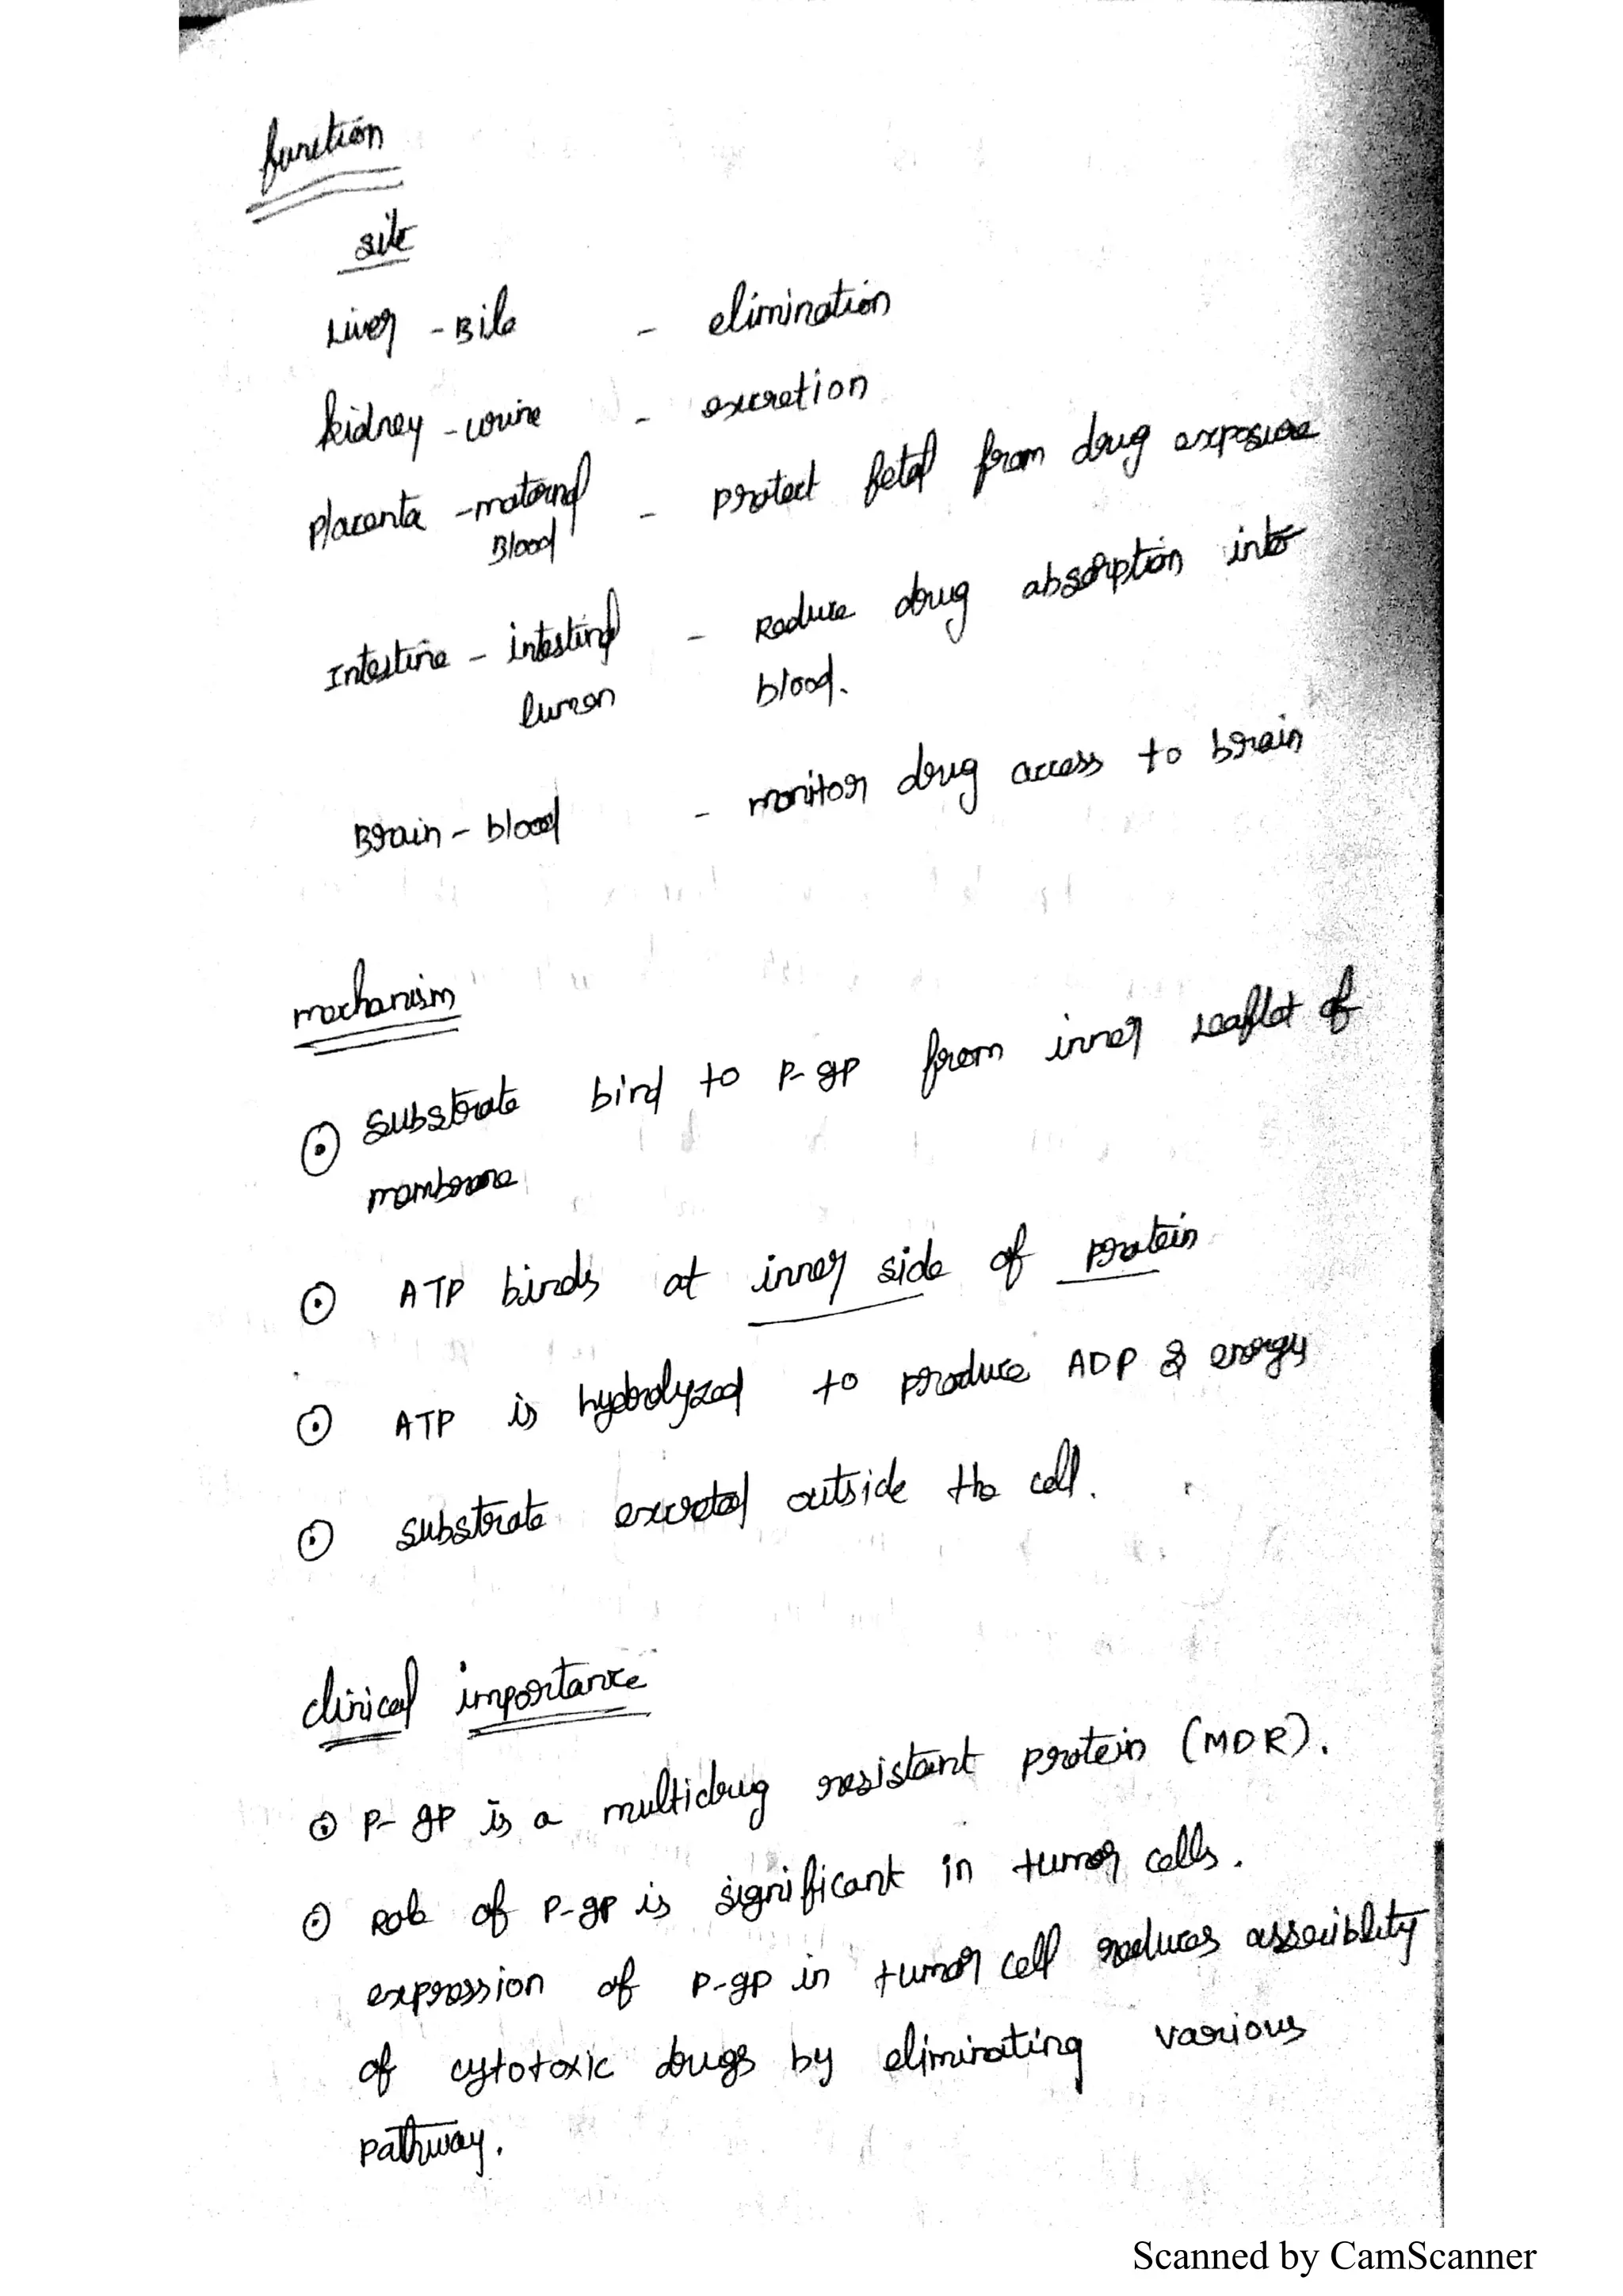 function
site
Liver - Bile - elimination
kidney - urine - excretion
placenta - maternal - protect fetal from drug exposure
Blood
Intestine - intestinal - Reduce drug absorption into
lumen blood.
Brain - blood - monitor drug access to brain
mechanism
substrate bind to P-gp from inner leaflet of
membrane
ATP binds at inner side of protein
ATP is hydrolyzed to produce ADP & energy
substrate excreted outside the cell.
clinical importance
P-gp is a multidrug resistant protein (MDR).
Role of P-gp is significant in tumor cells.
expression of P-gp in tumor cell reduces asseciblity
of cytotoxic drugs by eliminating various
pathway.
Scanned by CamScanner